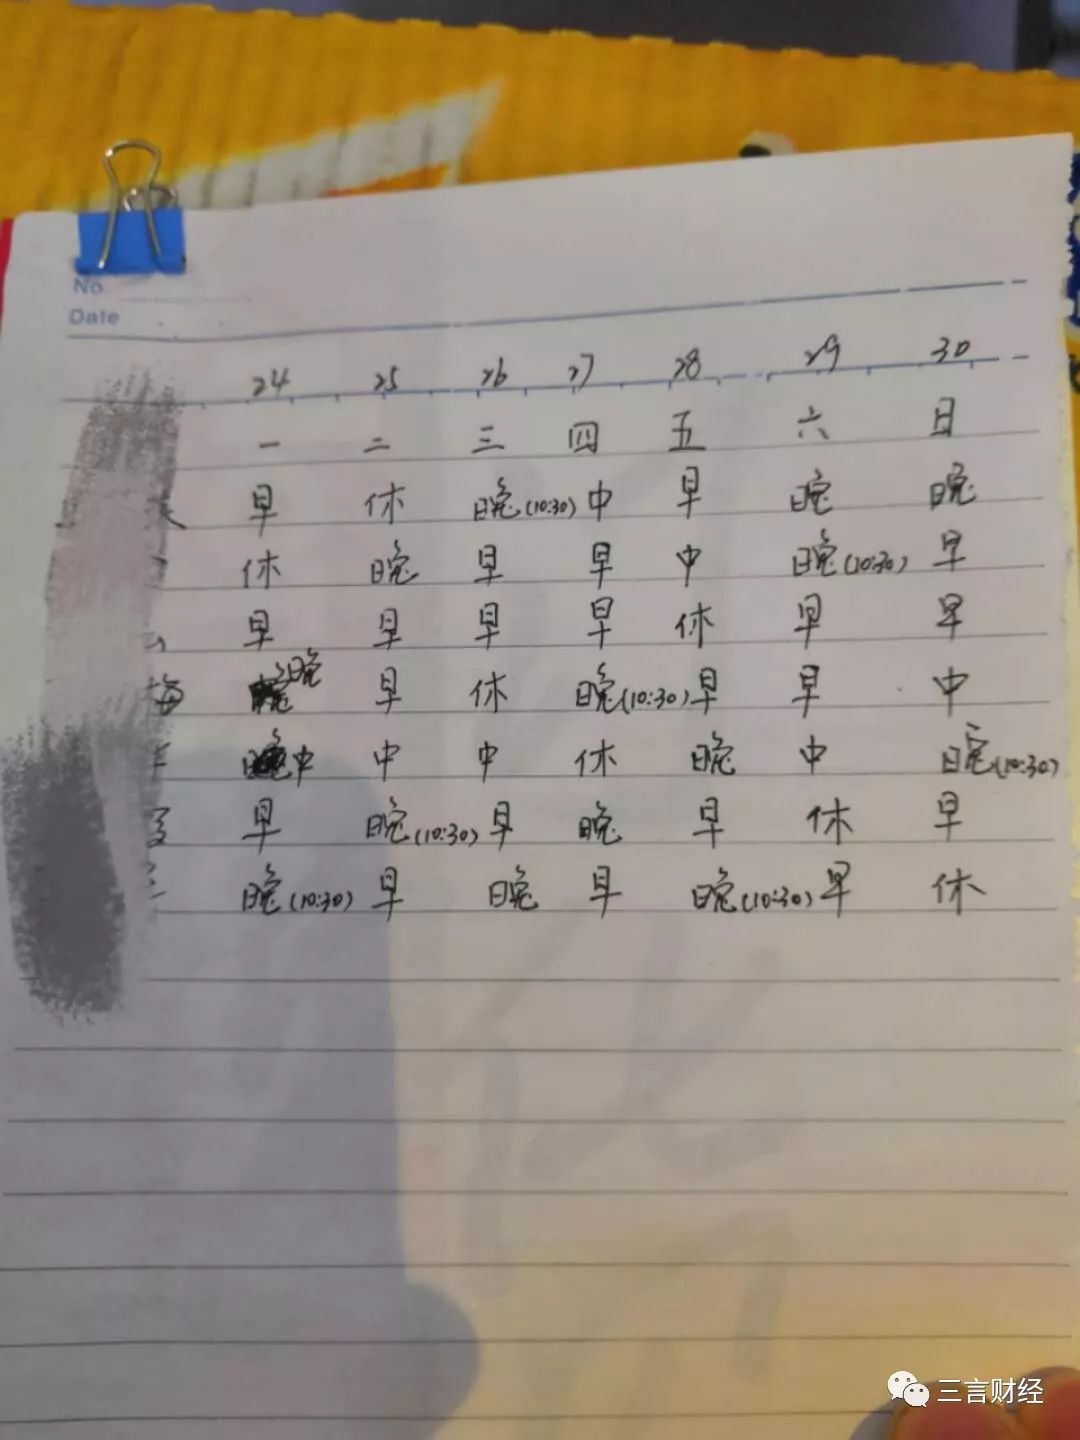 No
Date
24 25 26 27 28 29 30
一 二 三 四 五 六 日
早 休 晚(10:30) 中 早 晚 晚
休 晚 早 早 中 晚(10:30) 早
早 早 早 早 休 早 早
梅 晚 早 休 晚(10:30) 早 早 中
中 中 中 休 晚 中 晚(10:30)
早 晚(10:30) 早 晚 早 休 早
晚(10:30) 早 晚 早 晚(10:30) 早 休
三言财经